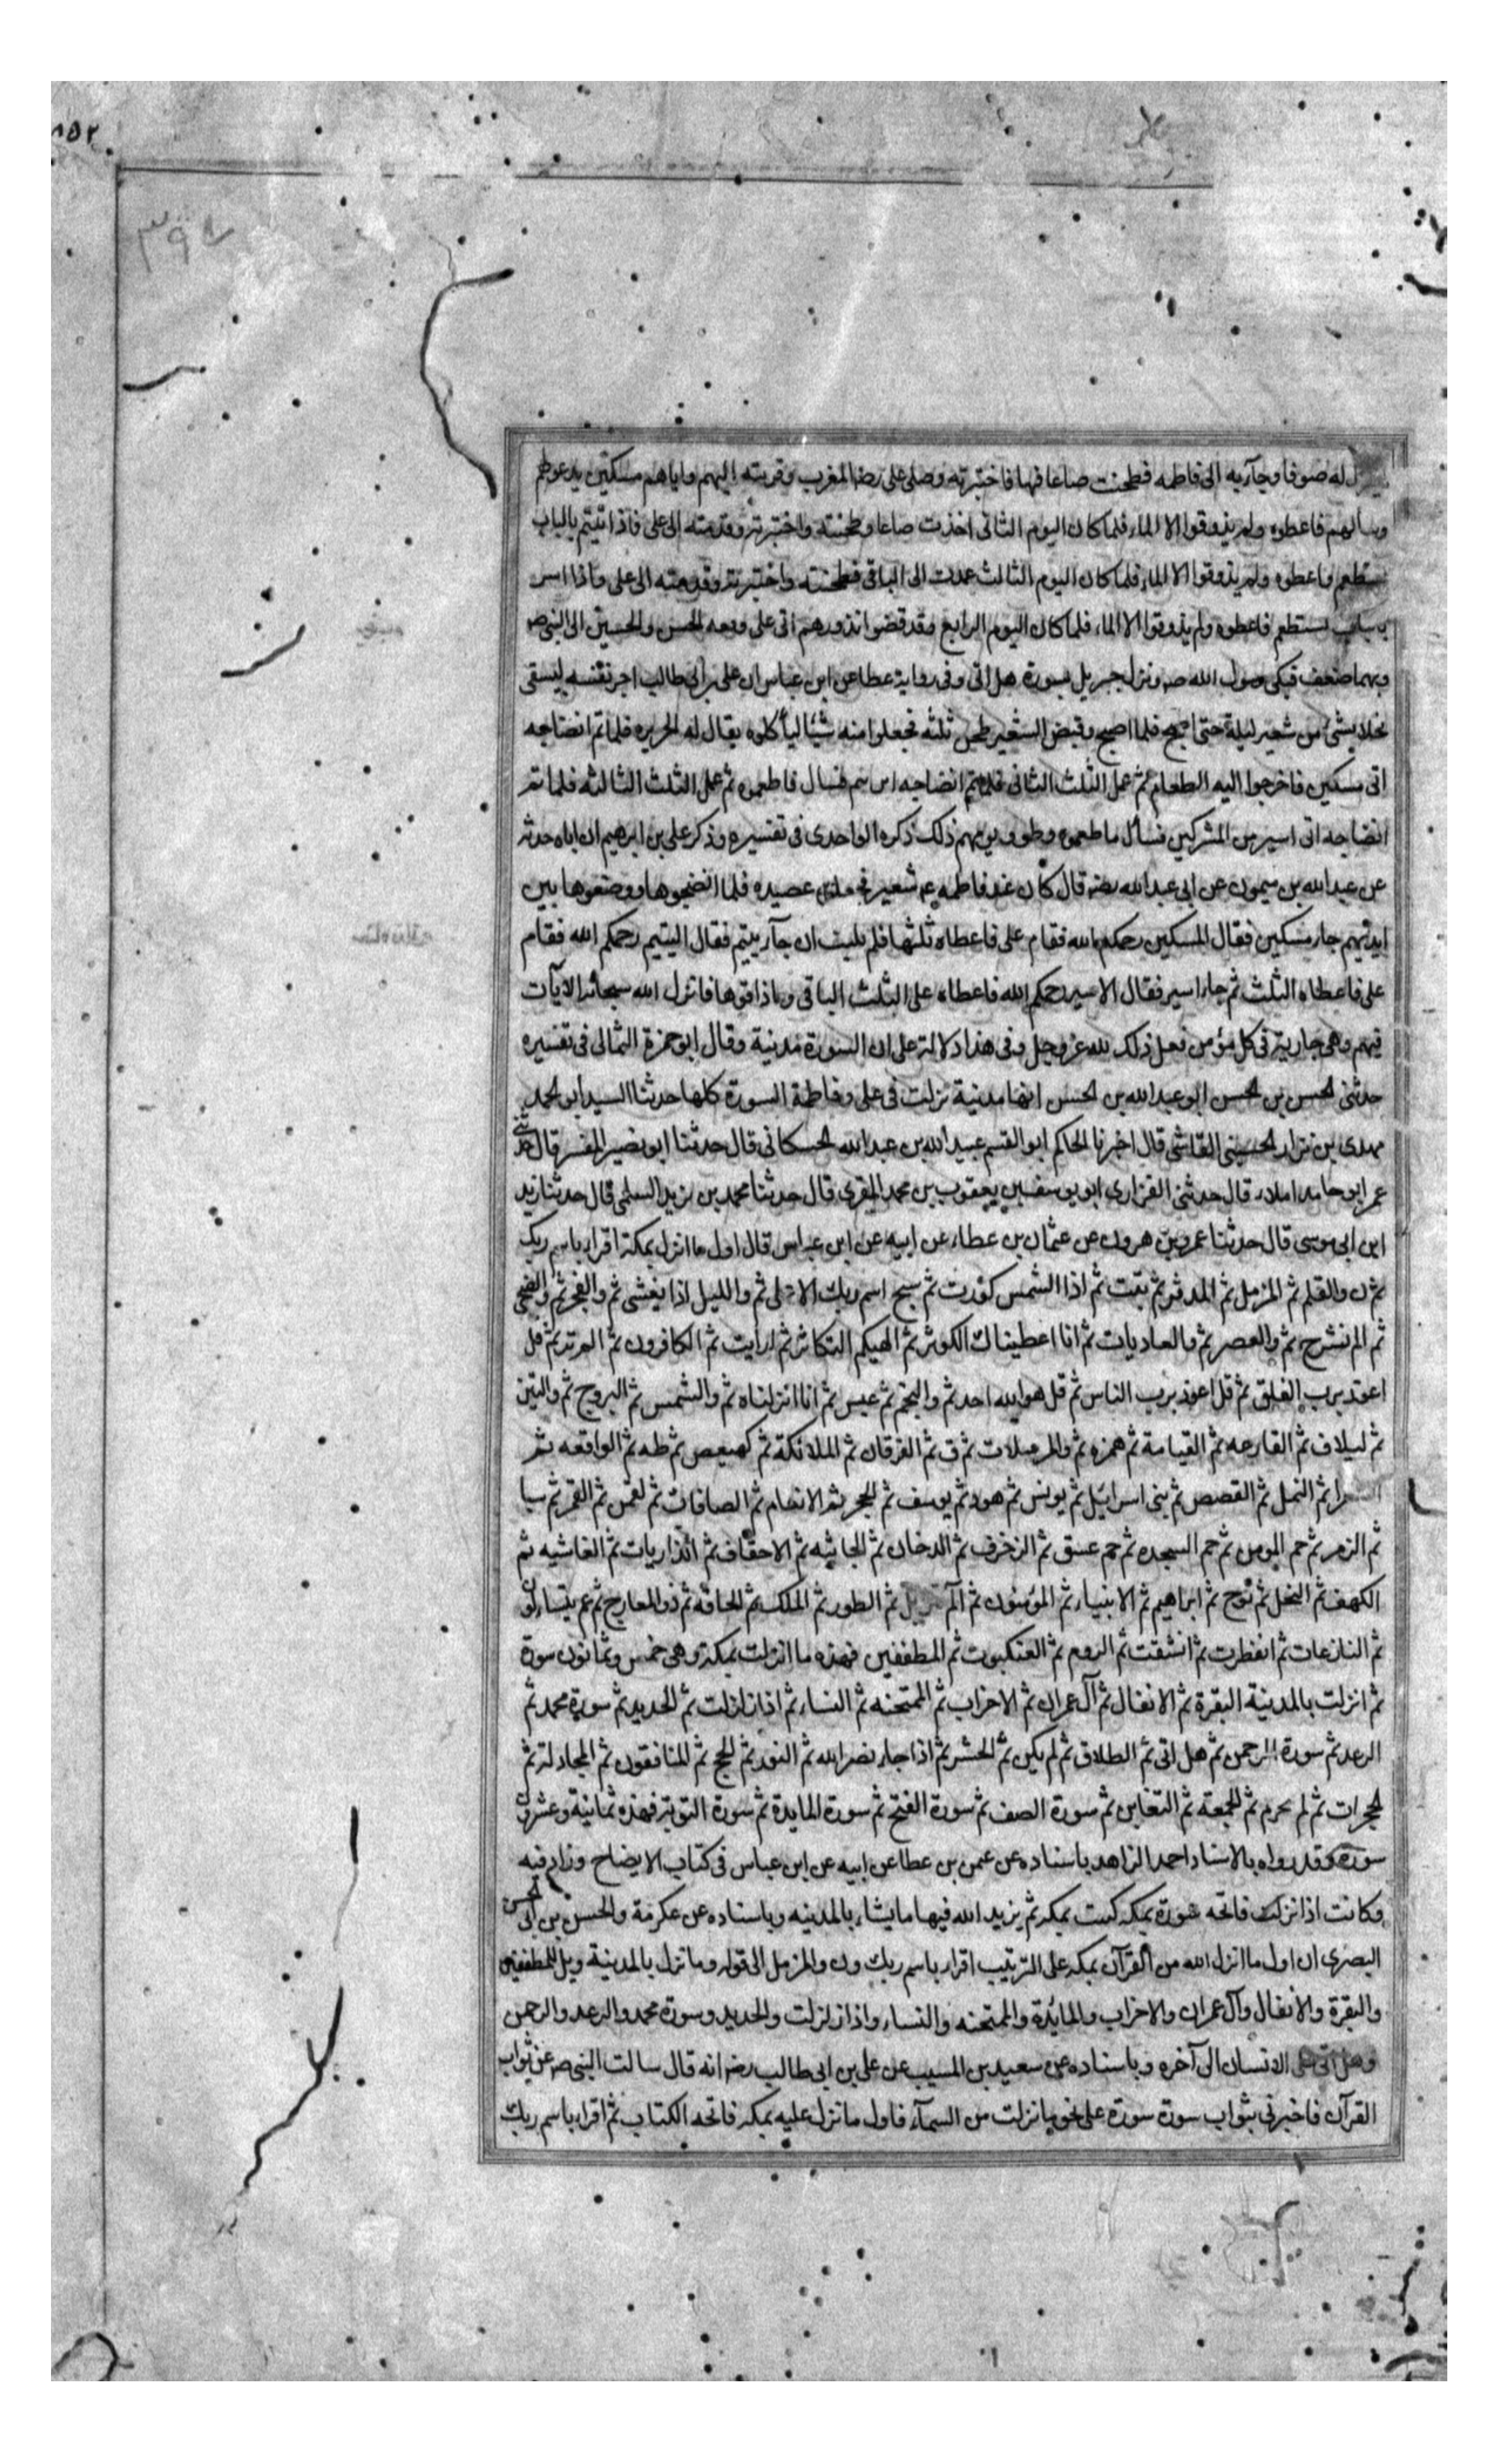 ٨٥٢
٣٩٨
له صوفا وجآء به الى فاطمه فطحنت صاعا منها فاختبزته وصلى على رضه المغرب وقربته اليهم واتاهم مسكين يدعو لهم
ويسالهم فاعطوه ولم يذوقوا الا الماء فلما كان اليوم الثانى اخذت صاعا وطحنته واختبزته وقدمته الى على فاذا يتيم بالباب
يستطعم فاعطوه ولم يذوقوا الا الماء فلما كان اليوم الثالث عمدت الى الباقى فطحنته واختبزته وقدمته الى على فاذا اسير
بالباب يستطعم فاعطوه ولم يذوقوا الا الماء فلما كان اليوم الرابع وقد قضوا نذورهم اتى على ومعه الحسن والحسين الى النبى صه
وبهما ضعف فبكى رسول الله صه ونزل جبريل بسورة هل اتى وفى رواية عطا عن ابن عباس ان على بن ابى طالب اجر نفسه ليسقى
نخلا بشئ من شعير ليلة حتى اصبح فلما اصبح وقبض الشعير طحن ثلثه فجعلوا منه شيئا ليأكلوه يقال له الحريره فلما تم انضاجه
اتى مسكين فاخرجوا اليه الطعام ثم عمل الثلث الثانى فلما تم انضاجه اتى يتيم فسال فاطعموه ثم عمل الثلث الثالث فلما تم
انضاجه اتى اسير من المشركين فسأل فاطعموه وطووا يومهم ذلك ذكره الواحدى فى تفسيره وذكر على بن ابرهيم ان اباه حدثه
عن عبدالله بن ميمون عن ابى عبدالله رضه قال كان عند فاطمه ع شعير فجعلوه عصيده فلما انضجوها ووضعوها بين
ايديهم جاء مسكين فقال المسكين رحمكم الله فقام على فاعطاه ثلثها فلم يلبث ان جآء يتيم فقال اليتيم رحمكم الله فقام
على فاعطاه الثلث ثم جاء اسير فقال الاسير رحمكم الله فاعطاه على الثلث الباقى وماذاقوها فانزل الله سبحانه الآيات
فيهم وهى جارية فى كل مؤمن فعل ذلك لله عز وجل وفى هذا دلالة على ان السورة مدنية وقال ابو حمزة الثمالى فى تفسيره
حدثنى الحسن بن الحسن ابو عبدالله بن الحسن انها مدنية نزلت فى على وفاطمة السورة كلها حدثنا السيد ابو الحمد
مهدى بن نزار الحسينى القاشى قال اخبرنا الحاكم ابو القسم عبيد الله بن عبدالله الحسكانى قال حدثنا ابو نصير المفسر قال حدثنى
عم ابو حامد املاء قال حدثنى الفزارى ابو يوسف بن يعقوب بن محمد المقرى قال حدثنا محمد بن يزيد السلمى قال حدثنا زيد
ابن ابى موسى قال حدثنا عمرو بن هرون عن عثمان بن عطاء عن ابيه عن ابن عباس قال اول ما انزل بمكة اقرا باسم ربك
ثم ن والقلم ثم المزمل ثم المدثر ثم تبت ثم اذا الشمس كورت ثم سبح اسم ربك الاعلى ثم والليل اذا يغشى ثم والفجر ثم والضحى
ثم الم نشرح ثم والعصر ثم والعاديات ثم انا اعطيناك الكوثر ثم الهيكم التكاثر ثم ارايت ثم الكافرون ثم الم تر ثم قل
اعوذ برب الفلق ثم قل اعوذ برب الناس ثم قل هو الله احد ثم والنجم ثم عبس ثم انا انزلناه ثم والشمس ثم البروج ثم والتين
ثم ليلاف ثم القارعه ثم القيامة ثم همزه ثم والمرسلات ثم ق ثم الفرقان ثم الملائكة ثم كهيعص ثم طه ثم الواقعه ثم
الشعرا ثم النمل ثم القصص ثم بنى اسرائيل ثم يونس ثم هود ثم يوسف ثم الحجر ثم الانعام ثم الصافات ثم لقمن ثم القمر ثم سبا
ثم الزمر ثم حم المومن ثم حم السجده ثم حم عسق ثم الزخرف ثم الدخان ثم الجاثيه ثم الاحقاف ثم الذاريات ثم الغاشيه ثم
الكهف ثم النحل ثم نوح ثم ابراهيم ثم الانبياء ثم المؤمنون ثم الم تنزيل ثم الطور ثم الملك ثم الحاقة ثم ذو المعارج ثم عم يتساءلون
ثم النازعات ثم انفطرت ثم انشقت ثم الروم ثم العنكبوت ثم المطففين فهذه ما انزلت بمكة وهى خمس وثمانون سورة
ثم انزلت بالمدنية البقرة ثم الانفال ثم آل عمران ثم الاحزاب ثم الممتحنه ثم النساء ثم اذا زلزلت ثم الحديد ثم سورة محمد ثم
الرعد ثم سورة الرحمن ثم هل اتى ثم الطلاق ثم لم يكن ثم الحشر ثم اذا جاء نصر الله ثم النور ثم الحج ثم المنافقون ثم المجادلة ثم
الحجرات ثم لم تحرم ثم الجمعة ثم التغابن ثم سورة الصف ثم سورة الفتح ثم سورة المايدة ثم سورة التوبة فهذه ثمانية وعشرون
سورة وقد رواه بالاسناد احمد الزاهد باسناده عن عمن بن عطا عن ابيه عن ابن عباس فى كتاب الايضاح وزاد فيه
وكانت اذا نزلت فاتحه سورة بمكه كتبت بمكه ثم يزيد الله فيها ما يشاء بالمدينه وباسناده عن عكرمة والحسن بن ابى الحسن
البصرى ان اول ما انزل الله من القرآن بمكه على الترتيب اقرا باسم ربك ون والمزمل الى قوله وما نزل بالمدينة ويل للمطففين
والبقرة والانفال وآل عمران والاحزاب والمائدة والممتحنه والنساء واذا زلزلت والحديد وسورة محمد والرعد والرحمن
وهل اتى على الانسان الى آخره وباسناده عن سعيد بن المسيب عن على بن ابى طالب رضه انه قال سالت النبى صه عن ثواب
القرآن فاخبرنى بثواب سورة سورة على نحو ما نزلت من السمآء فاول ما نزل عليه بمكه فاتحه الكتاب ثم اقرا باسم ربك